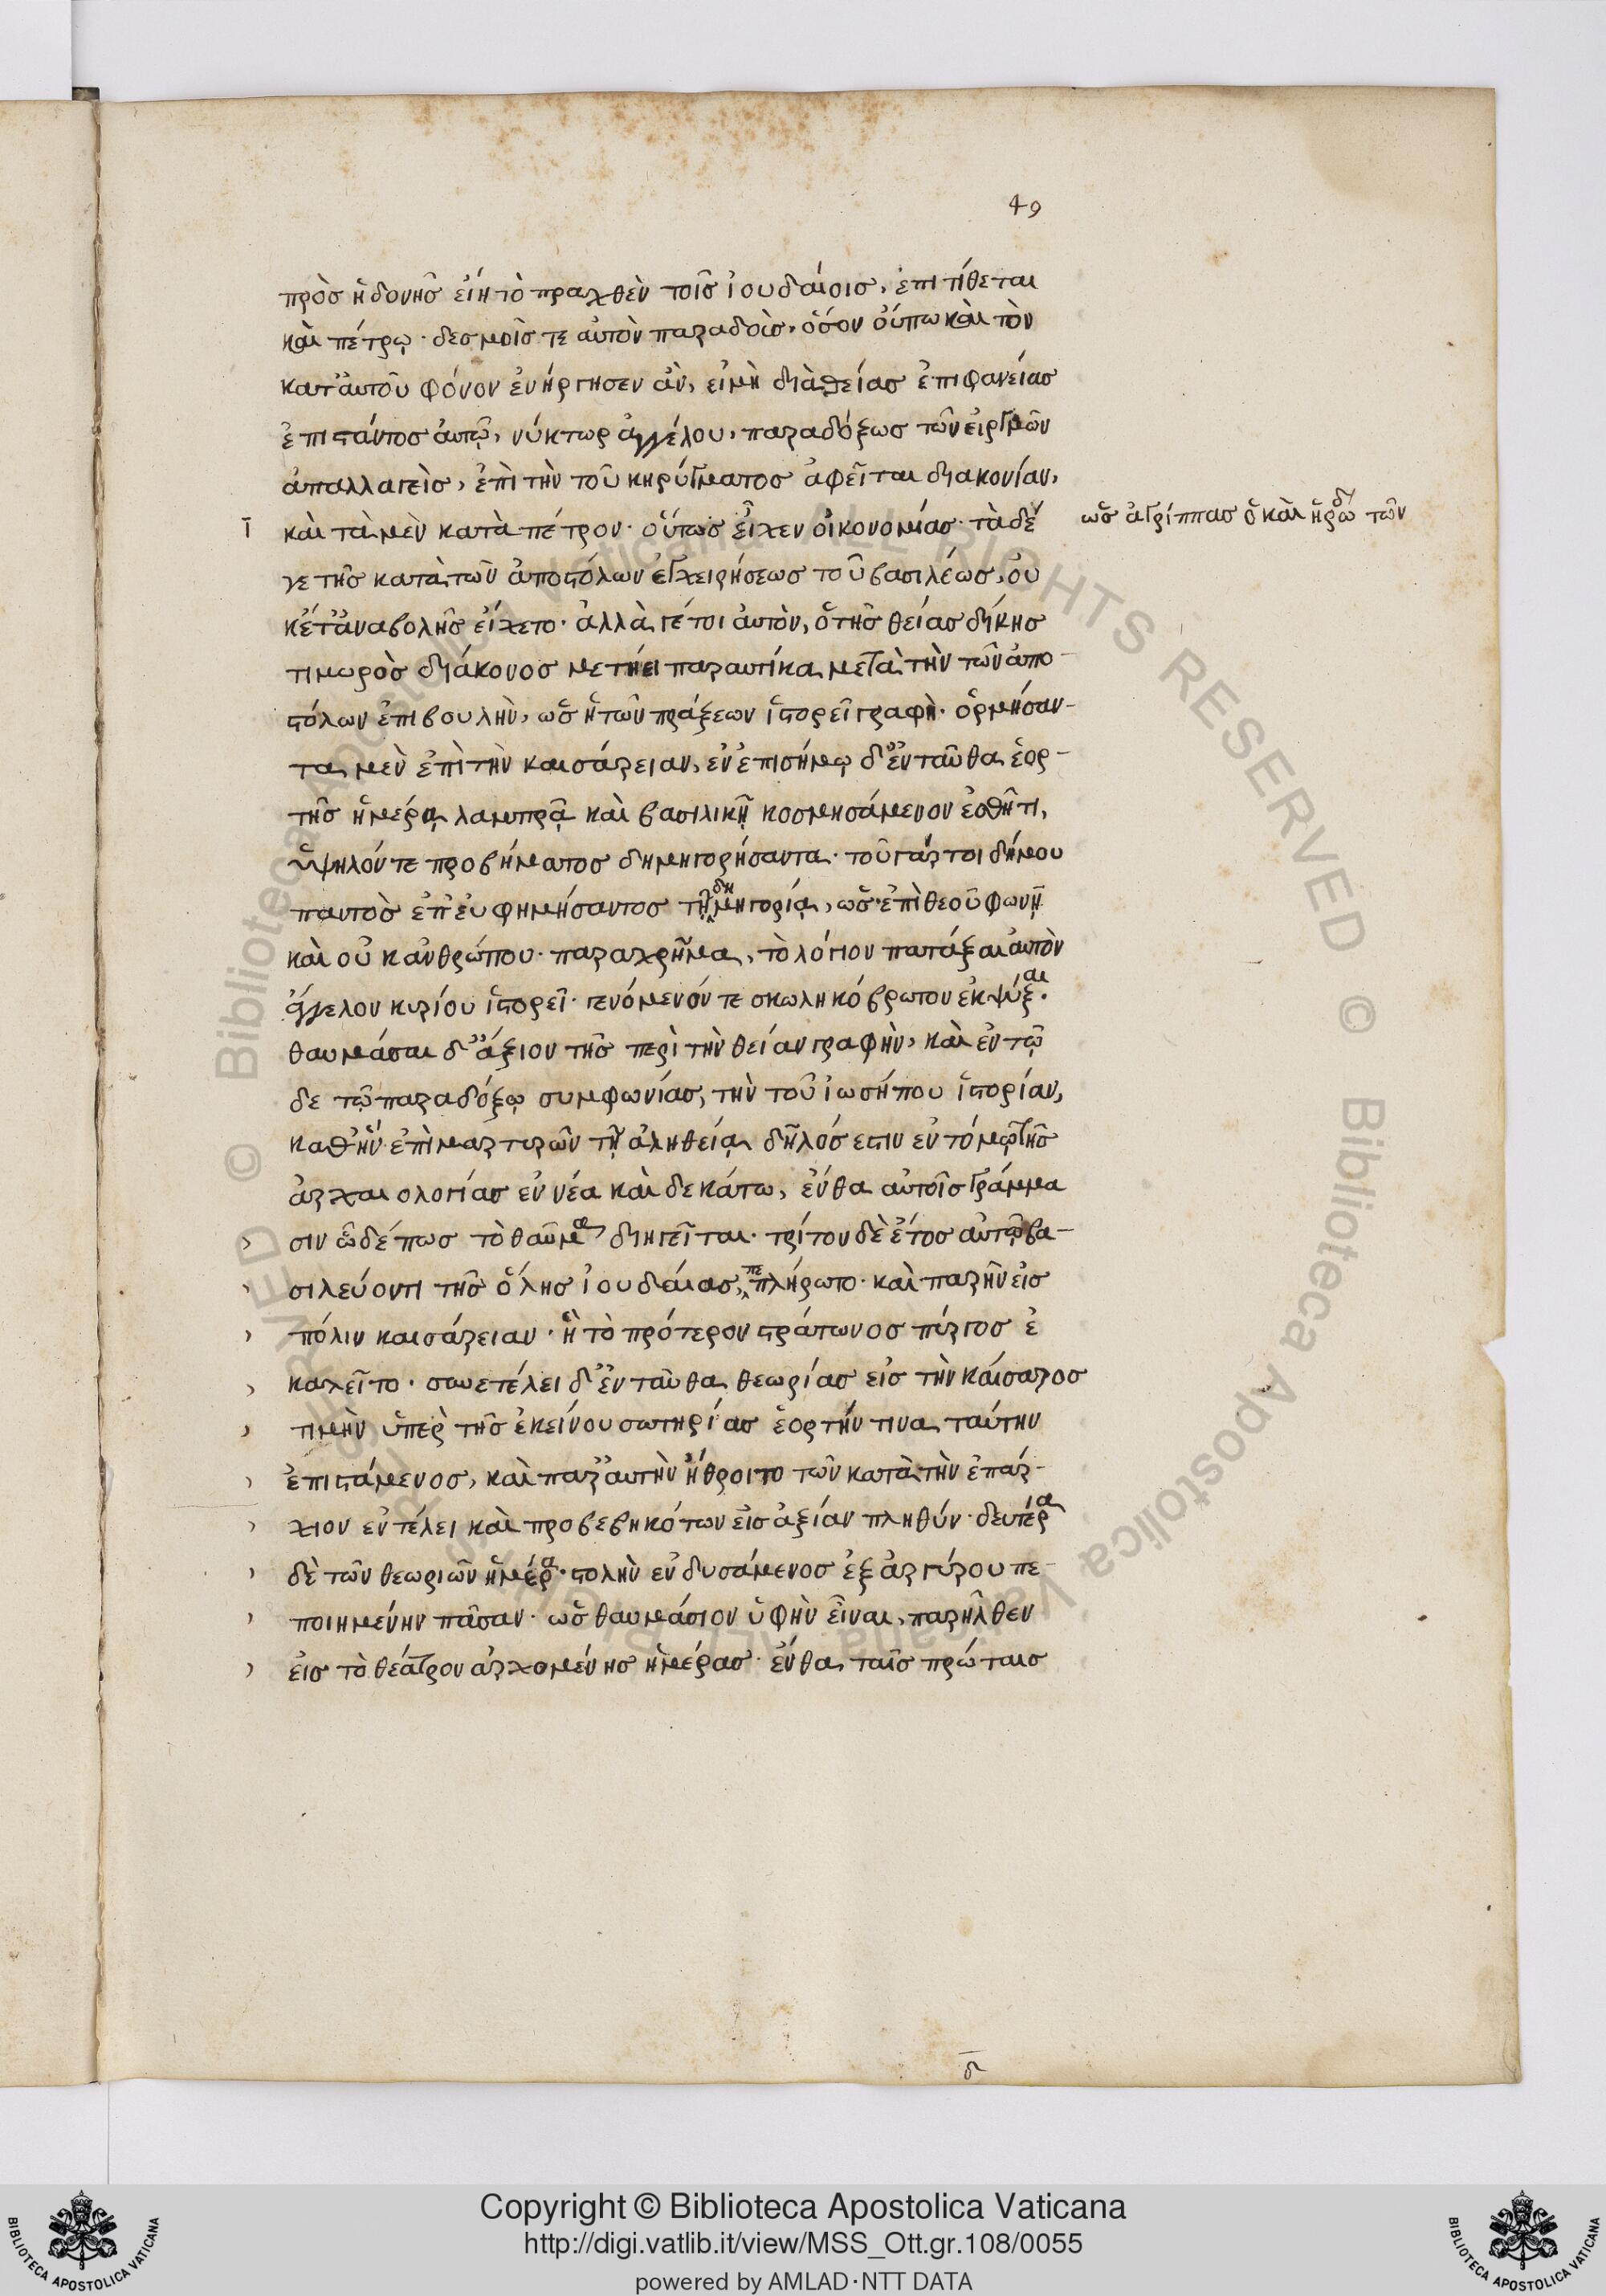 49
πρὸς ἡδονῆς εἴη τὸ πραχθὲν τοῖς ἰουδαίοις, ἐπιτίθεται
καὶ πέτρῳ· δεσμοῖς τε αὐτὸν παραδοὺς, ὅσον οὔπω καὶ τὸν
κατ' αὐτοῦ φόνον ἐνήργησεν ἂν, εἰ μὴ διὰ θείας ἐπιφανείας
ἐπιστάντος αὐτῷ, νύκτωρ ἀγγέλου, παραδόξως τῶν εἰργμῶν
ἀπαλλαγεὶς, ἐπὶ τὴν τοῦ κηρύγματος ἀφεῖται διακονίαν,
ι καὶ τὰ μὲν κατὰ πέτρον· οὕτως εἶχεν οἰκονομίας· τὰ δέ
ὡς ἀγρίππας ὁ καὶ ἡρώδ τῶν
γε τῆς κατὰ τῶν ἀποστόλων ἐγχειρήσεως τοῦ βασιλέως, οὐ
κέτ' ἀναβολῆς εἴχετο· ἀλλὰ γέ τοι αὐτὸν, ὁ τῆς θείας δίκης
τιμωρὸς διάκονος μετήει παραυτίκα μετὰ τὴν τῶν ἀπο-
στόλων ἐπιβουλὴν, ὡς ἡ τῶν πράξεων ἱστορεῖ γραφὴ· ὁρμήσαν-
τα μὲν ἐπὶ τὴν καισάρειαν, ἐν ἐπισήμῳ δ' ἐνταῦθα ἑορ-
τῆς ἡμέρᾳ λαμπρᾷ καὶ βασιλικῇ κοσμησάμενον ἐσθῆτι,
ὑψηλόν τε προβήματος δημηγορήσαντα· τοῦ γάρ τοι δήμου
παντὸς ἐπ' εὐφημήσαντος τῇ δημηγορίᾳ, ὡς ἐπὶ θεοῦ φωνῇ
καὶ οὐκ ἀνθρώπου· παραχρῆμα, τὸ λόγιον πατάξαι αὐτὸν
ἄγγελον κυρίου ἱστορεῖ· γενόμενόν τε σκωληκόβρωτον ἐκψύξαι·
θαυμάσαι δ' ἄξιον τῆς περὶ τὴν θείαν γραφὴν, καὶ ἐν τῷ
δε τῷ παραδόξῳ συμφωνίας, τὴν τοῦ ἰωσήπου ἱστορίαν,
καθ' ἣν ἐπὶ μαρτυρῶν τῇ ἀληθείᾳ δῆλός ἐστιν ἐν τόμῳ τῆς
ἀρχαιολογίας ἐννέα καὶ δεκάτω, ἔνθα αὐτοῖς γράμμα
σιν ὧδέ πως τὸ θαῦμα διηγεῖται· τρίτον δὲ ἔτος αὐτῷ βα-
σιλεύοντι τῆς ὅλης ἰουδαίας, πεπλήρωτο· καὶ παρῆν εἰς
πόλιν καισάρειαν· ἣ τὸ πρότερον στράτωνος πύργος ἐ
καλεῖτο· συνετέλει δ' ἐνταῦθα θεωρίας εἰς τὴν καίσαρος
τιμὴν ὑπὲρ τῆς ἐκείνου σωτηρίας ἑορτήν τινα ταύτην
ἐπιστάμενος, καὶ παρ' αὐτὴν ἤθροιτο τῶν κατὰ τὴν ἐπάρ-
χιον ἐν τέλει καὶ προβεβηκότων εἰς ἀξίαν πληθύν· δευτέρα
δὲ τῶν θεωριῶν ἡμέρα· στολὴν ἐνδυσάμενος ἐξ ἀργύρου πε-
ποιημένην πᾶσαν· ὡς θαυμάσιον ὑφὴν εἶναι, παρῆλθεν
εἰς τὸ θέατρον ἀρχομένης ἡμέρας· ἔνθα ταῖς πρώταις
Copyright © Biblioteca Apostolica Vaticana
http://digi.vatlib.it/view/MSS_Ott.gr.108/0055
powered by AMLAD·NTT DATA